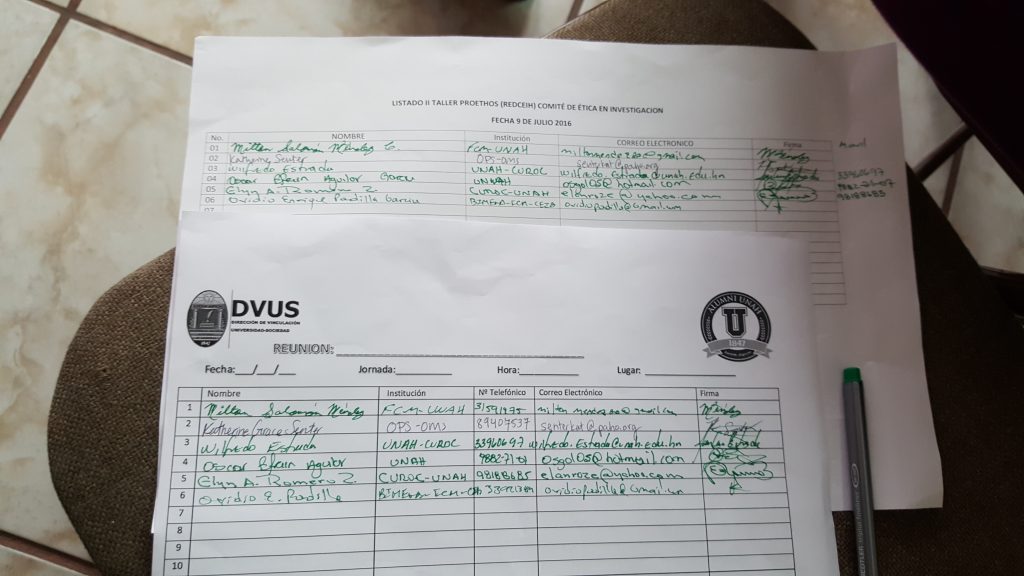 LISTADO II TALLER PROETHOS (REDCEIH) COMITÉ DE ÉTICA EN INVESTIGACION
FECHA 9 DE JULIO 2016
No. NOMBRE Institución CORREO ELECTRONICO Firma
01 Milton Salomón Méndez C. FCM-UNAH
02 Katherine Senter OPS-OMS senterkat@paho.org
03 Wilfredo Estrada UNAH-CUROC wilfredo.Estrada@unah.edu.hn 33960697
04 Oscar Efrain Aguilar UNAH osgol05@hotmail.com
05 Elyn A. Romero Z. CUROC-UNAH elanroze@yahoo.com 98188685
06 Ovidio Enrique Padilla ovidiopadilla@gmail.com
07
DVUS
DIRECCIÓN DE VINCULACIÓN
UNIVERSIDAD-SOCIEDAD
1847
ALUMNI UNAH
U
1847
REUNION:
Fecha:___/___/___ Jornada: Hora: Lugar:
Nombre Institución Nº Telefónico Correo Electrónico Firma
1 Milton Salomón Méndez FCM-UNAH
2 Katherine Grace Senter OPS-OMS 89407537 senterkat@paho.org
3 Wilfredo Estrada UNAH-CUROC 33960697 wilfredo.Estrada@unah.edu.hn
4 Oscar Efrain Aguilar UNAH osgol05@hotmail.com
5 Elyn A. Romero Z. CUROC-UNAH 98188685 elanroze@yahoo.com
6 Ovidio E. Padilla ovidiopadilla@gmail.com
7
8
9
10